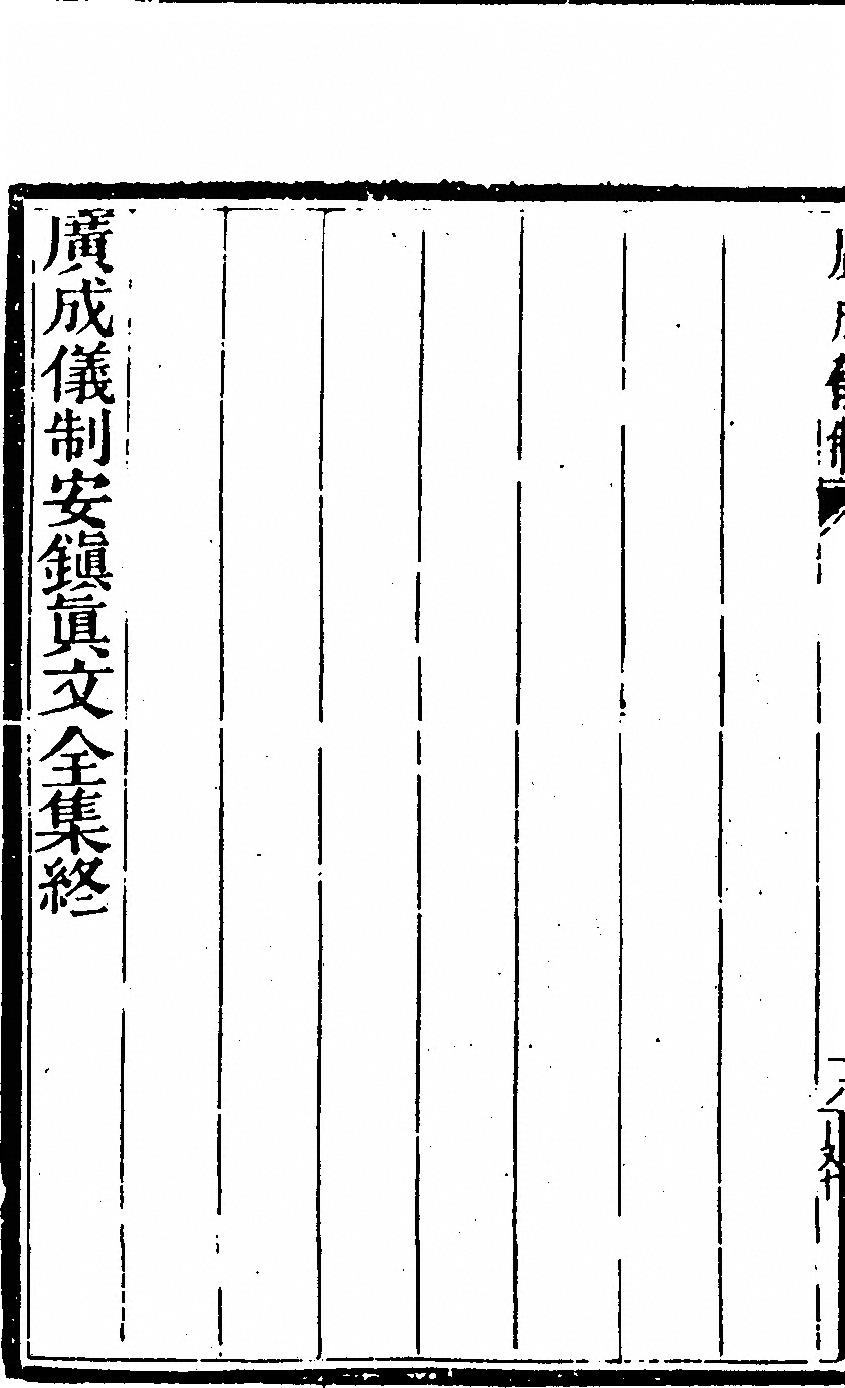 廣成儀制安鎭眞文全集終